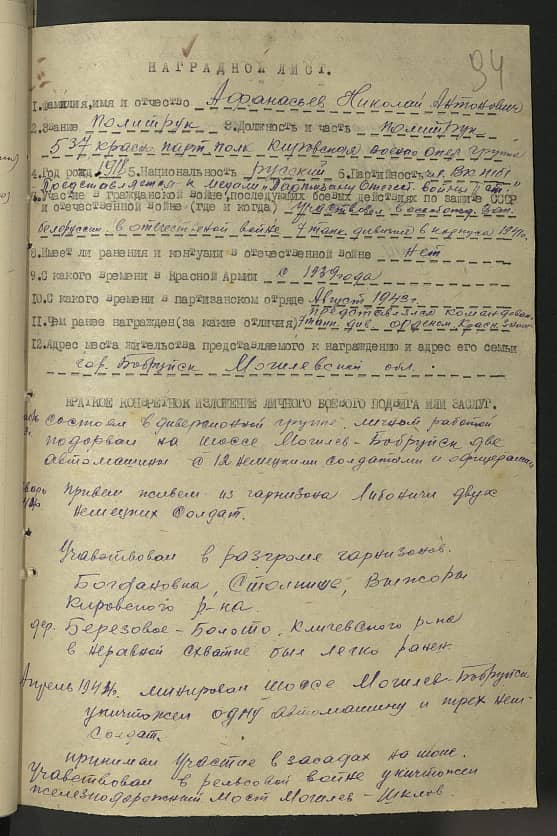 94
НАГРАДНОЙ ЛИСТ.
1.Фамилия,имя и отчество Афанасьев Николай Антонович
2.Звание политрук 3.Должность и часть политрук
537 красн. парт полк Кировская военно опер группа
4.Год рожд. 1918 5.Национальность русский 6.Партийность чл. ВКП(б)
Представляется к медали "Партизану Отечест. войны" I ст."
7.Участие в гражданской войне,последующих боевых действиях по защите СССР
и отечественной войне (где и когда) участвовал в освобожд. Зап.
белоруссии, в отечественой войне 7 танк. дивизии 6 корпуса 1941г.
8.Имеет ли ранения и контузии в отечественной войне нет
9.С какого времени в Красной Армии с 1939 года
10.С какого времени в партизанском отряде Август 1943г.
представлялся командован.
11.Чем ранее награжден(за какие отличия) 7 танк. див. орденом Красн.
12.Адрес места жительства представляемого к награждению и адрес его семьи
гор. Бобруйск Могилевской обл.
КРАТКОЕ КОНКРЕТНОЕ ИЗЛОЖЕНИЕ ЛИЧНОГО БОЕВОГО ПОДВИГА ИЛИ ЗАСЛУГ.
состоял в диверсионной группе, личной работой
подорвал на шоссе Могилев-Бобруйск две
автомашины с 12 немецкими солдатами и офицерами
привел живьем из гарнизона Любоничи двух
немецких солдат.
Учавствовал в разгроме гарнизонов.
Богдановка, Столпище, Выжоры
Кировского р-на.
дер. Березовое-Болото, Кличевского р-на
в неравной схватке был легко ранен.
Апрель 1944г. минировал шоссе Могилев-Бобруйск
уничтожен одну автомашину и трех нем-
солдат.
принимал участие в засадах на шоссе.
Учавствовал в рельсовой войне уничтожен
железнодорожный мост Могилев-Шклов.